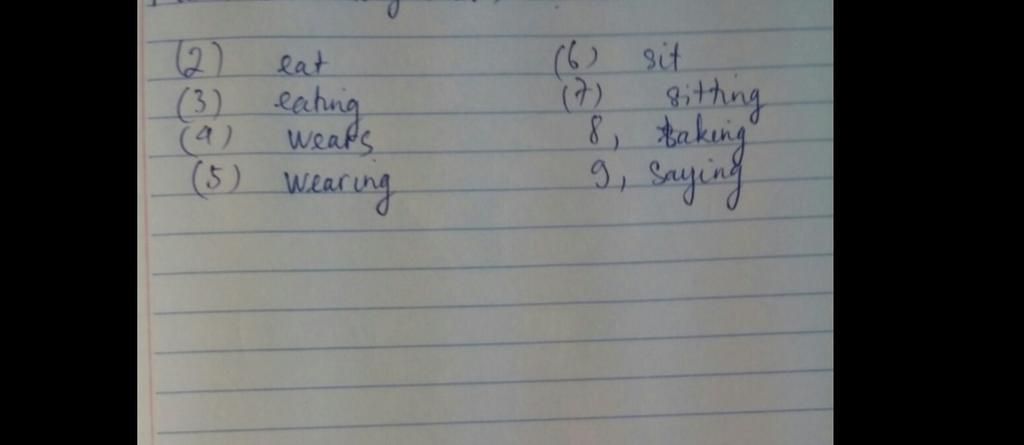 (2) eat (6) sit
(3) eating (7) sitting
(4) wears 8, taking
(5) wearing 9, saying